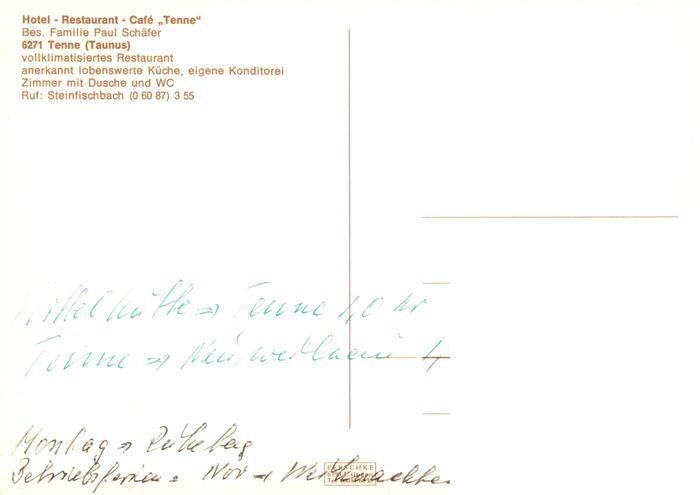 Hotel - Restaurant - Café „Tenne“
Bes. Familie Paul Schäfer
6271 Tenne (Taunus)
vollklimatisiertes Restaurant
anerkannt lobenswerte Küche, eigene Konditorei
Zimmer mit Dusche und WC
Ruf: Steinfischbach (0 60 87) 3 55
⇒ Tenne 1,0 hr
Tenne ⇒ Neuweilnau
Montag ⇒ Ruhetag
Betriebsferien = Nov ⇒ Weihnachten
PERSCHKE